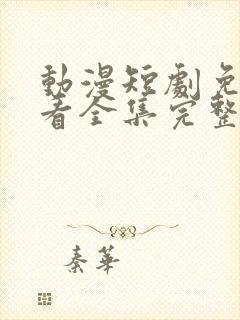 動漫短劇免
看全集完整
秦華